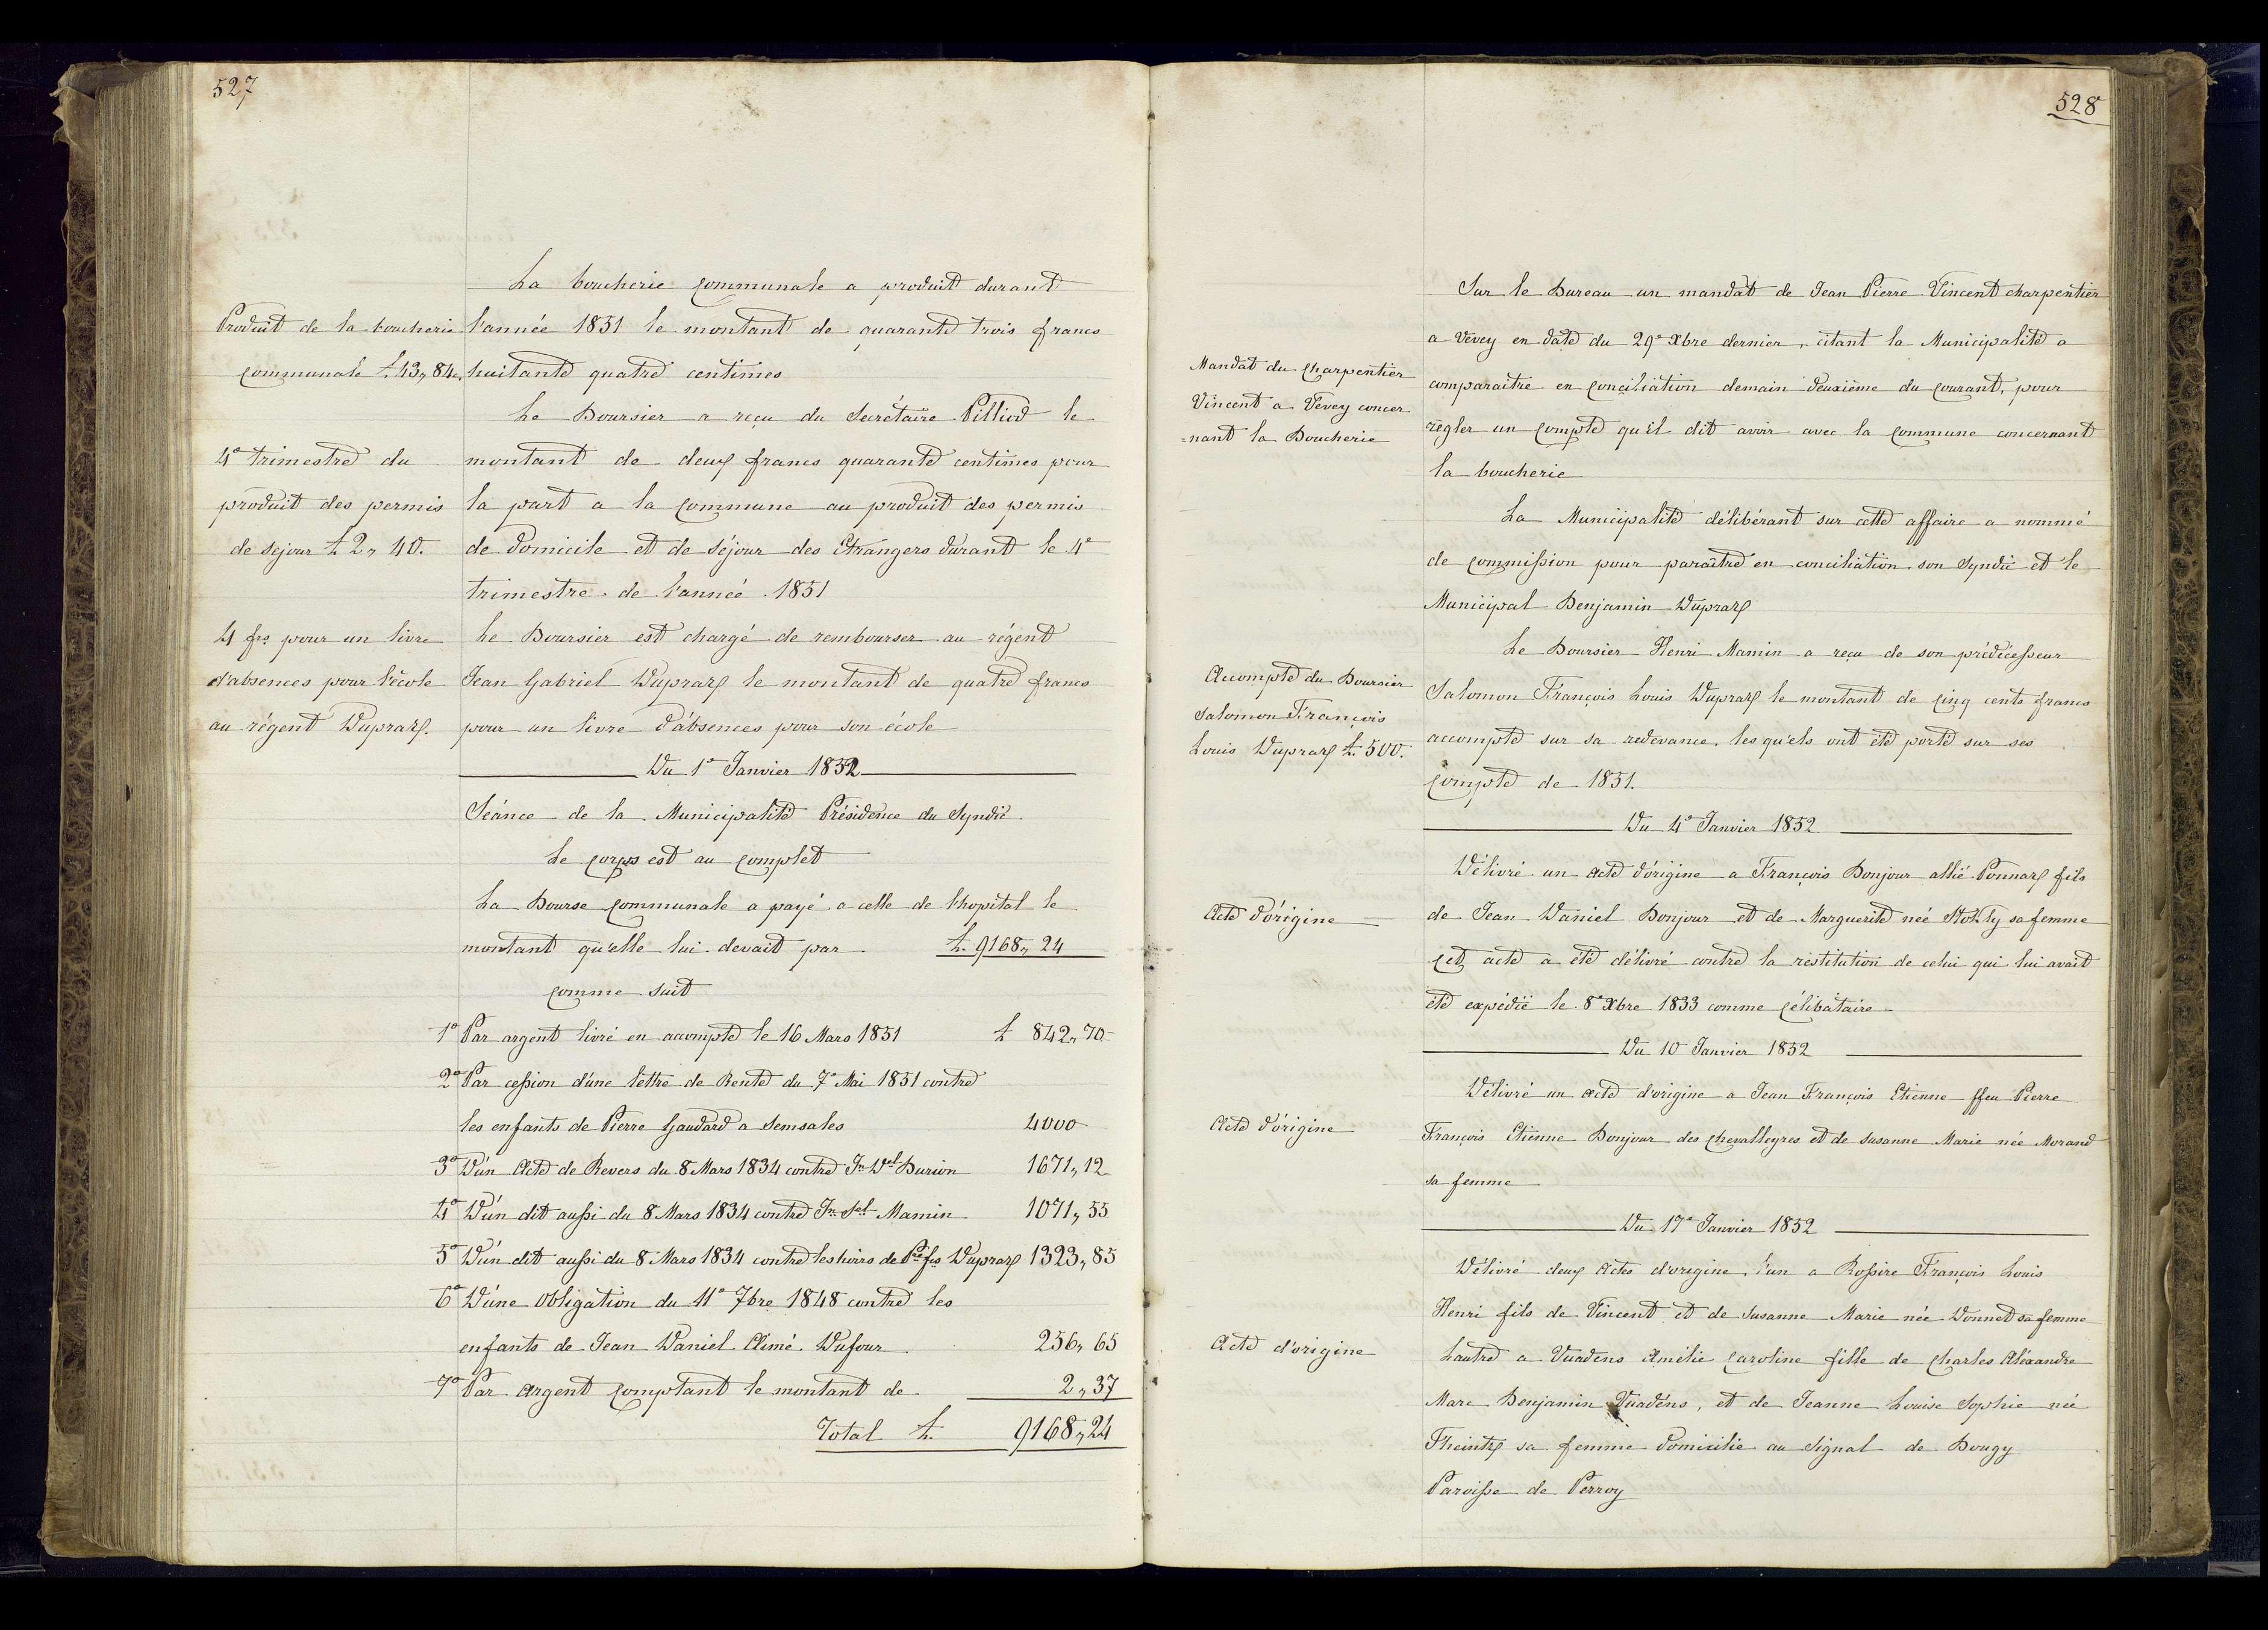 527
La boucherie communale a produit durant
Produit de la boucherie
l'année 1851 le montant de quarante trois francs
communale £ 43,, 84c.
huitante quatre centimes
Le Boursier a reçu du Secrétaire Pilliod le
4e trimestre du
montant de deux francs quarante centimes pour
produit des permis
la part a la commune au produit des permis
de sejour £ 2,, 40.
de domicile et de séjour des Etrangers durant le 4e
trimestre de l'année 1851
4 frs pour un livre
Le Boursier est chargé de rembourser au régent
d'absences pour l'école
Jean Gabriel Dupraz le montant de quatre francs
au régent Dupraz.
pour un livre d'absences pour son école
Du 1e Janvier 1852
Séance de la Municipalité Présidence du Syndic
Le corps est au complet
La Bourse communale a payé a celle de l'hopital le
montant qu'elle lui devait par £. 9168,, 24
comme suit
1o Par argent livré en accompte le 16 Mars 1851 £ 842,, 70
2o Par cession d'une lettre de Rente du 7e Mai 1851 contre
les enfants de Pierre Gaudard a Semsales 4000
3o D'un Acte de Revers du 8 Mars 1834 contre Jn Del Burion 1671,, 12
4o D'un dit aussi du 8 Mars 1834 contre Jn Sel Mamin 1071,, 55
5o D'un dit aussi du 8 Mars 1834 contre les hoirs de Pre fs Dupraz 1323,, 85
6o D'une Obligation du 11e 7bre 1848 contre les
enfants de Jean Daniel Aimé Dufour 256,, 65
7o Par argent comptant le montant de 2,, 37
Total £. 9168,, 24
528
Sur le Bureau un mandat de Jean Pierre Vincent charpentier
a Vevey en date du 29e Xbre dernier, citant la Municipalité a
Mandat du charpentier
comparaître en conciliation demain deuxième du courant, pour
Vincent a Vevey concer
règler un compte qu'il dit avoir avec la commune concernant
=nant la Boucherie
la boucherie
La Municipalité délibérant sur cette affaire a nommé
de commission pour paraître en conciliation son Syndic et le
Municipal Benjamin Dupraz
Le Boursier Henri Mamin a reçu de son prédécesseur
Accompte du Boursier
Salomon François Louis Dupraz le montant de cinq cents francs
Salomon François
accompte sur sa redevance, les qu'els ont été porté sur ses
Louis Dupraz £. 500.
compte de 1851.
Du 4e Janvier 1852
Délivré un acte d'origine a François Bonjour allié Ponnaz fils
Acte d'origine
de Jean Daniel Bonjour et de Marguerite née sa femme
cet acte a été délivré contre la restitution de celui qui lui avait
été expédié le 8e Xbre 1833 comme célibataire
Du 10 Janvier 1852
Délivré un acte d'origine a Jean François Etienne ffeu Pierre
Acte d'origine
François Etienne Bonjour des chevalleyres et de Susanne Marie née Morand
sa femme
Du 17e Janvier 1852
Délivré deux Actes d'origine, l'un a Rossire François Louis
Henri fils de Vincent et de Susanne Marie née Donnet sa femme
Acte d'origine
Lautre a Vuadens Amélie Caroline fille de Charles Aléxandre
Marc Benjamin Vuadens, et de Jeanne Louise Sophie née
Theintz sa femme domicilie au Signal de Bougy
Paroisse de Perroy